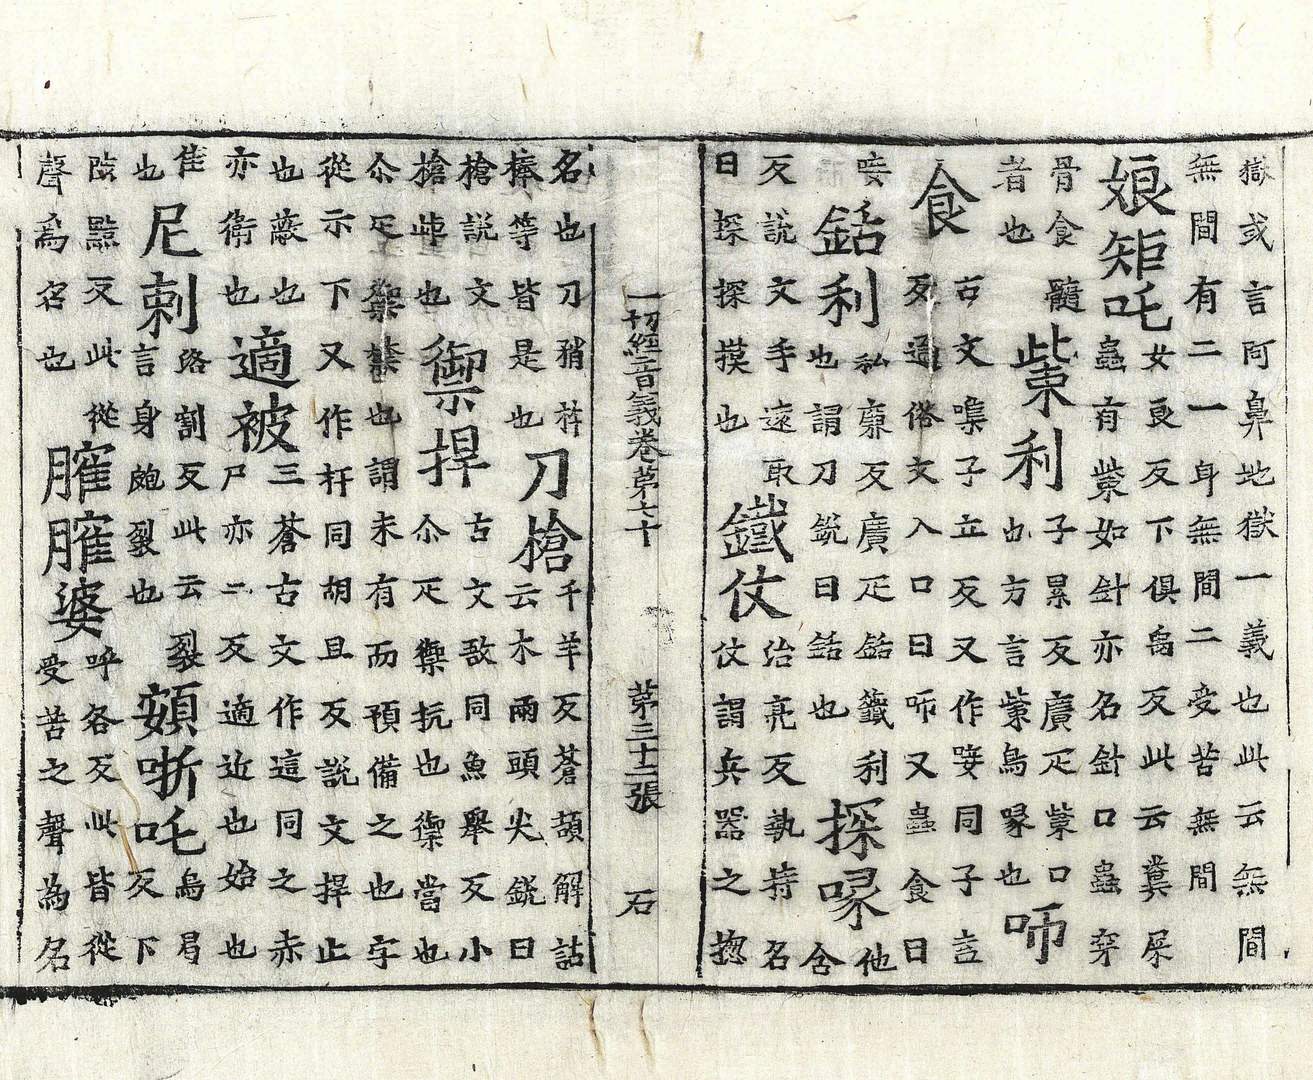 獄或言阿鼻地獄一義也此云無間
無間有二一身無間二受苦無間
娘矩吒女良反下俱禹反此云糞屎
蟲有㭰如針亦名針口蟲穿
骨食髓
者也
㭰利子累反廣疋㭰口
也方言㭰鳥喙也
咂
食古文㗱子立反又作唼同子
反通俗文入口曰咂又蟲食曰
唼
銛利私廉反廣疋銛籤利
也謂刀銳曰銛也
探喙他
含
反說文手遠取
曰探探摸也
鐵仗治亮反執持名
仗謂兵器之揔
一切經音義卷第七十 第三十二張 石
名也刀矟
捧等皆是也
刀槍千羊反蒼頡解詁
云木兩頭尖銳曰
槍說文
槍也
禦捍古文敔同魚舉反小
尒疋禦抗也禦當也
尒疋禦禁也謂未有而預備之也字
從示下又作扞同胡旦反說文捍止
也蔽也
亦衛也
適被三蒼古文作這同之赤
尸亦二反適近也始也
隹
也
尼剌洛割反此云裂
言身皰裂也
頞哳吒烏曷
反下
陟黠反此從
聲為名也
臛臛婆呼各反此皆從
受苦之聲為名